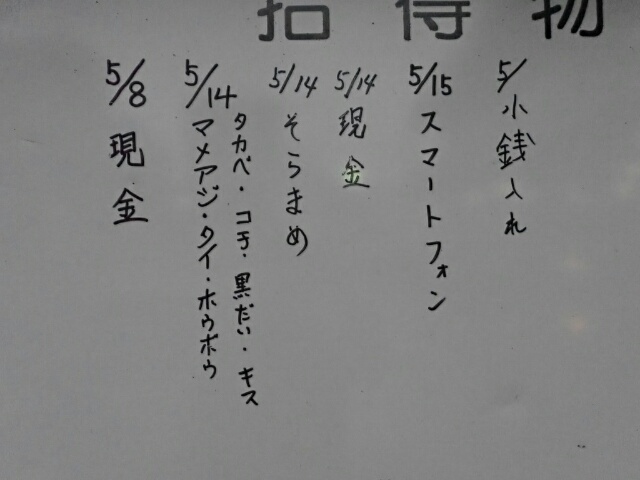 拾得物
5/小銭入れ
5/15 スマートフォン
5/14 現金
5/14 そらまめ
5/14 タカベ・コチ・黒だい・キス
マメアジ・タイ・ホウボウ
5/8 現金